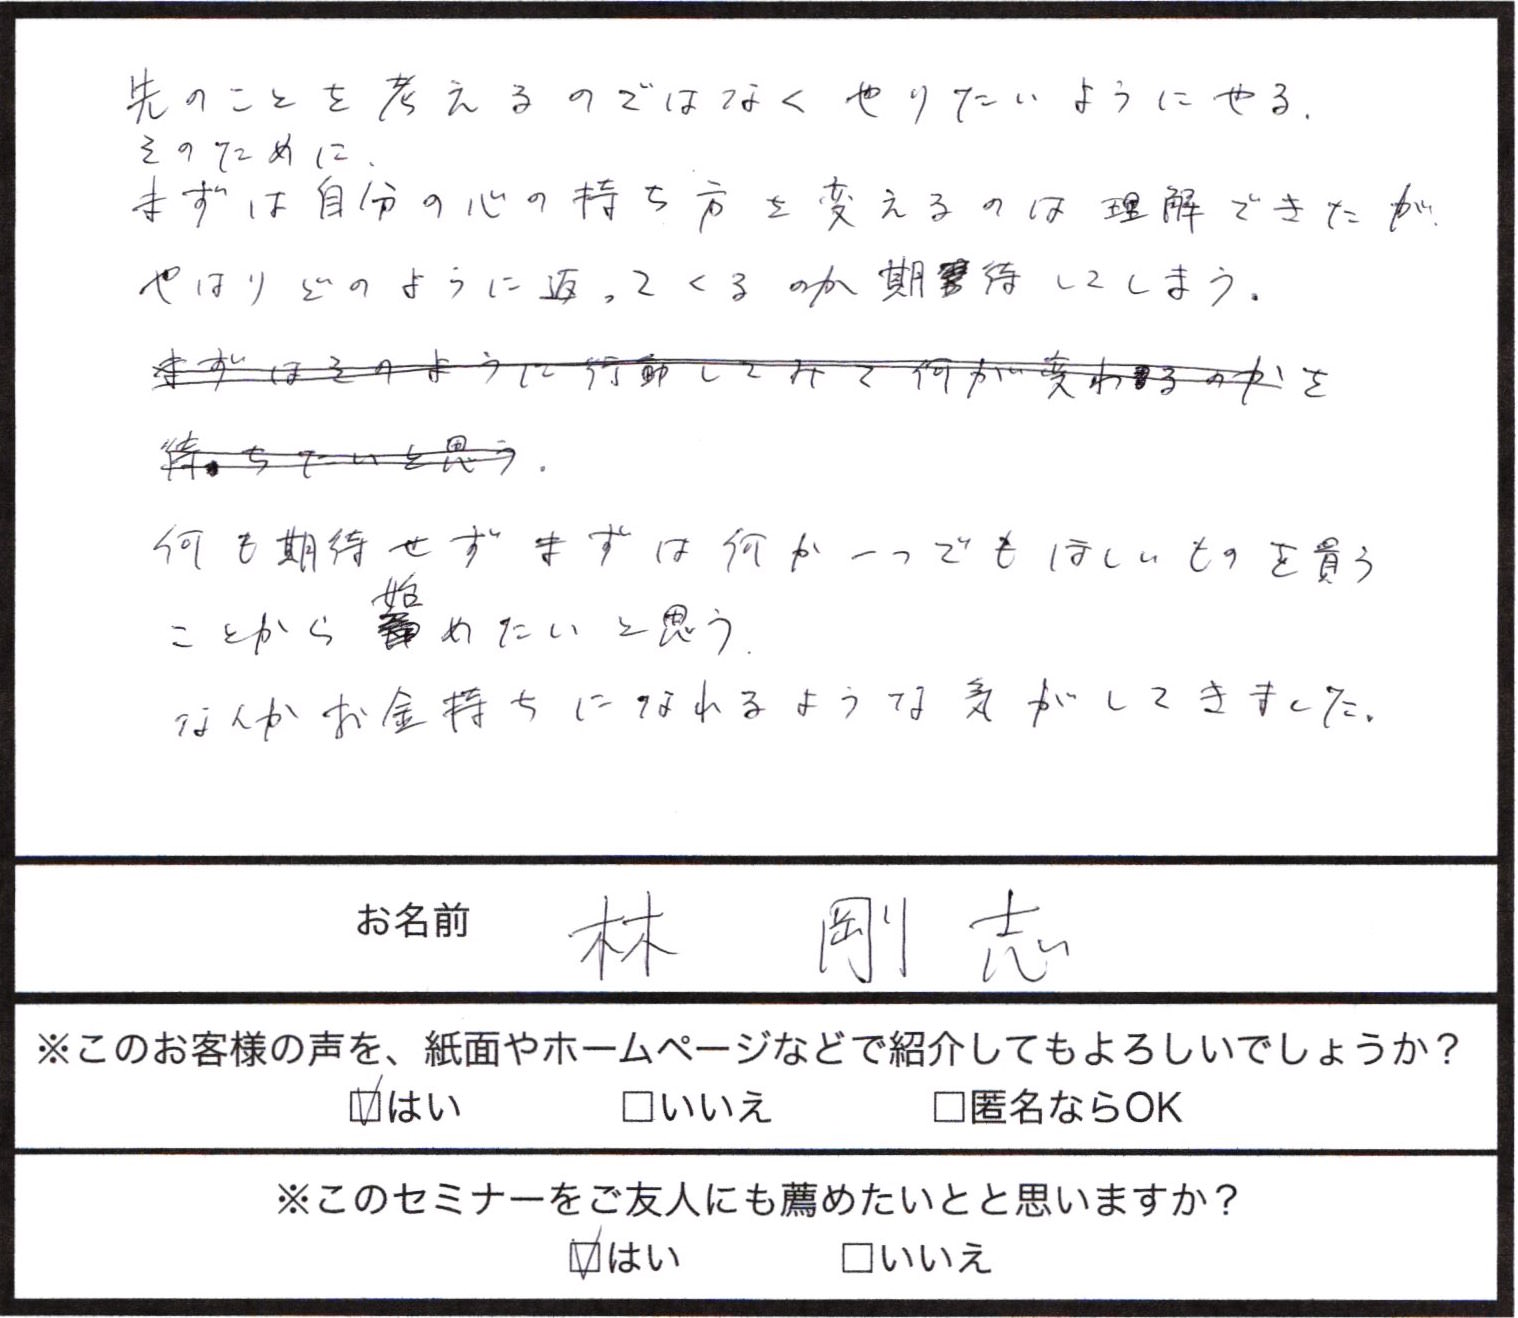 先のことを考えるのではなくやりたいようにやる.
そのために、
まずは自分の心の持ち方を変えるのは理解できたが、
やはりどのように返ってくるのか期待してしまう.
まずはそのように行動してみて何が変わるのかを
待ちたいと思う.
何も期待せずまずは何か一つでもほしいものを買う
ことから始めたいと思う.
なんかお金持ちになれるような気がしてきました.
お名前 林 剛志
※このお客様の声を、紙面やホームページなどで紹介してもよろしいでしょうか？
☑はい □いいえ □匿名ならOK
※このセミナーをご友人にも薦めたいとと思いますか？
☑はい □いいえ